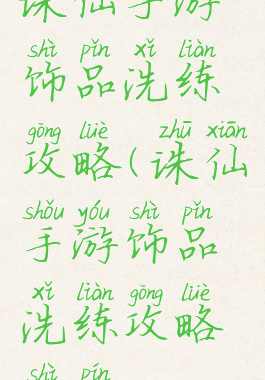 诛仙手游
shì pǐn xǐ liàn
饰品洗练
gōng lüè zhū xiān
攻略(诛仙
shǒu yóu shì pǐn
手游饰品
xǐ liàn gōng lüè
洗练攻略
shì pín